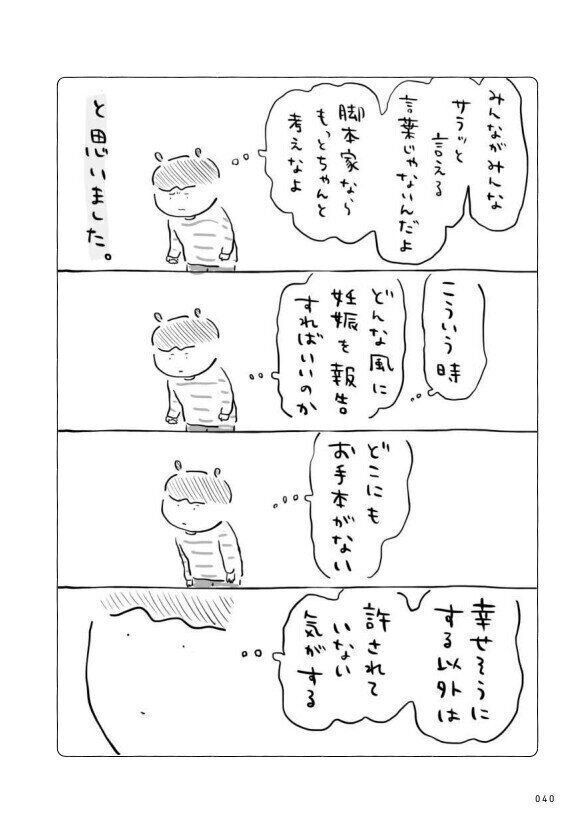 みんながみんな
サラッと
言える
言葉じゃないんだよ
脚本家なら
もっとちゃんと
考えなよ
と思いました。
こういう時
どんな風に
妊娠を報告
すればいいのか
どこにも
お手本がない
幸せそうに
する以外は
許されて
いない
気がする
040